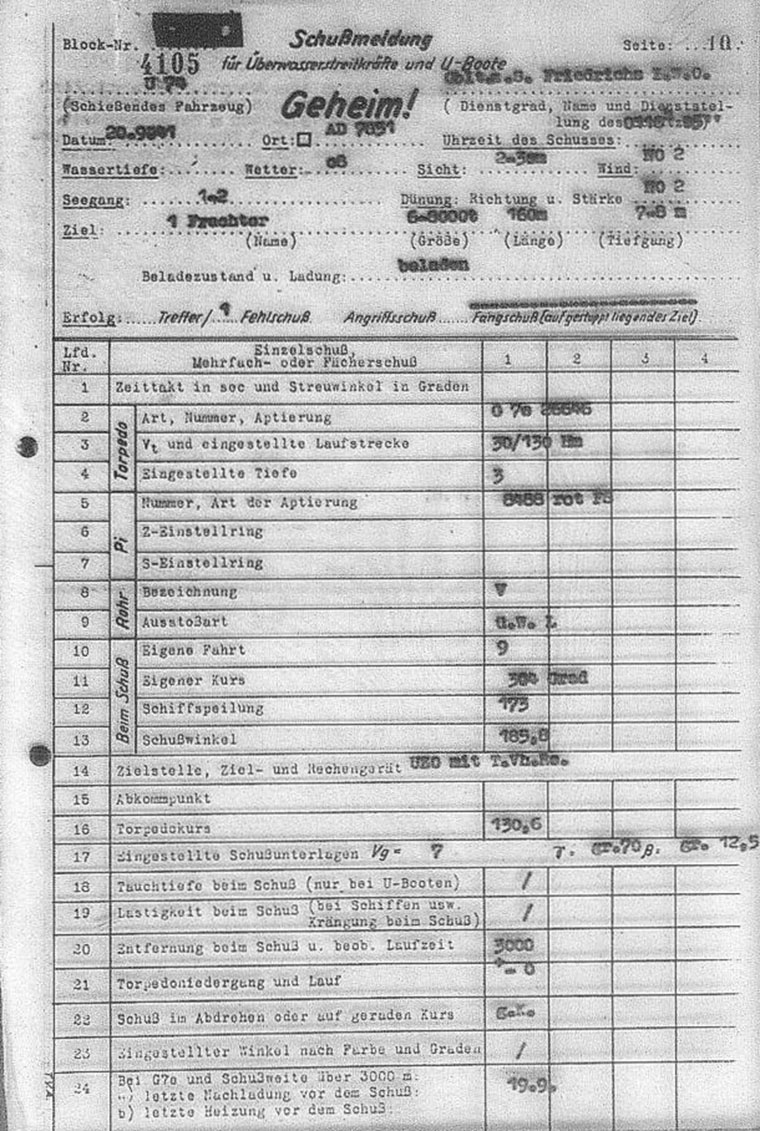 Schußmeldung
Block-Nr. Seite: ...10.
4105 für Überwasserstreitkräfte und U-Boote
U 74 Oblt.z.S. Friedrichs I.W.O.
(Schießendes Fahrzeug) Geheim! ( Dienstgrad, Name und Dienststel-
lung des
Datum: 20.9.41 Ort: AD 7851 Uhrzeit des Schusses:
Wassertiefe: Wetter: Sicht: 2-3sm Wind: NO 2
Seegang: 1-2 Dünung: Richtung u. Stärke NO 2
Ziel: 1 Frachter 6-8000t 160m 7-8 m
(Name) (Größe) (Länge) (Tiefgang)
Beladezustand u. Ladung: beladen
Erfolg: Treffer/ 1 Fehlschuß Angriffsschuß Fangschuß (auf gestoppt liegendes Ziel).
Lfd. Nr. Einzelschuß, Mehrfach- oder Fächerschuß 1 2 3 4
1 Zeittakt in sec und Streuwinkel in Graden
Torpedo
2 Art, Nummer, Aptierung G 7e
3 Vt und eingestellte Laufstrecke 30/130 Hm
4 Eingestellte Tiefe 3
Pi
5 Nummer, Art der Aptierung rot
6 Z-Einstellring
7 S-Einstellring
Rohr
8 Bezeichnung V
9 Ausstoßart
Beim Schuß
10 Eigene Fahrt 9
11 Eigener Kurs 304 Grad
12 Schiffspeilung 173
13 Schußwinkel 185,8
14 Zielstelle, Ziel- und Rechengerät UZO mit T.Vh.Re.
15 Abkommpunkt
16 Torpedokurs 130,6
17 Eingestellte Schußunterlagen Vg = 7 γ. Gr.70 β. Gr. 12,5
18 Tauchtiefe beim Schuß (nur bei U-Booten) /
19 Lastigkeit beim Schuß (bei Schiffen usw. Krängung beim Schuß) /
20 Entfernung beim Schuß u. beob. Laufzeit 3000
21 Torpedoniedergang und Lauf
22 Schuß im Abdrehen oder auf geraden Kurs
23 Eingestellter Winkel nach Farbe und Graden /
24 Bei G7e und Schußweite über 3000 m: 19.9.
a) letzte Nachladung vor dem Schuß:
b) letzte Heizung vor dem Schuß: